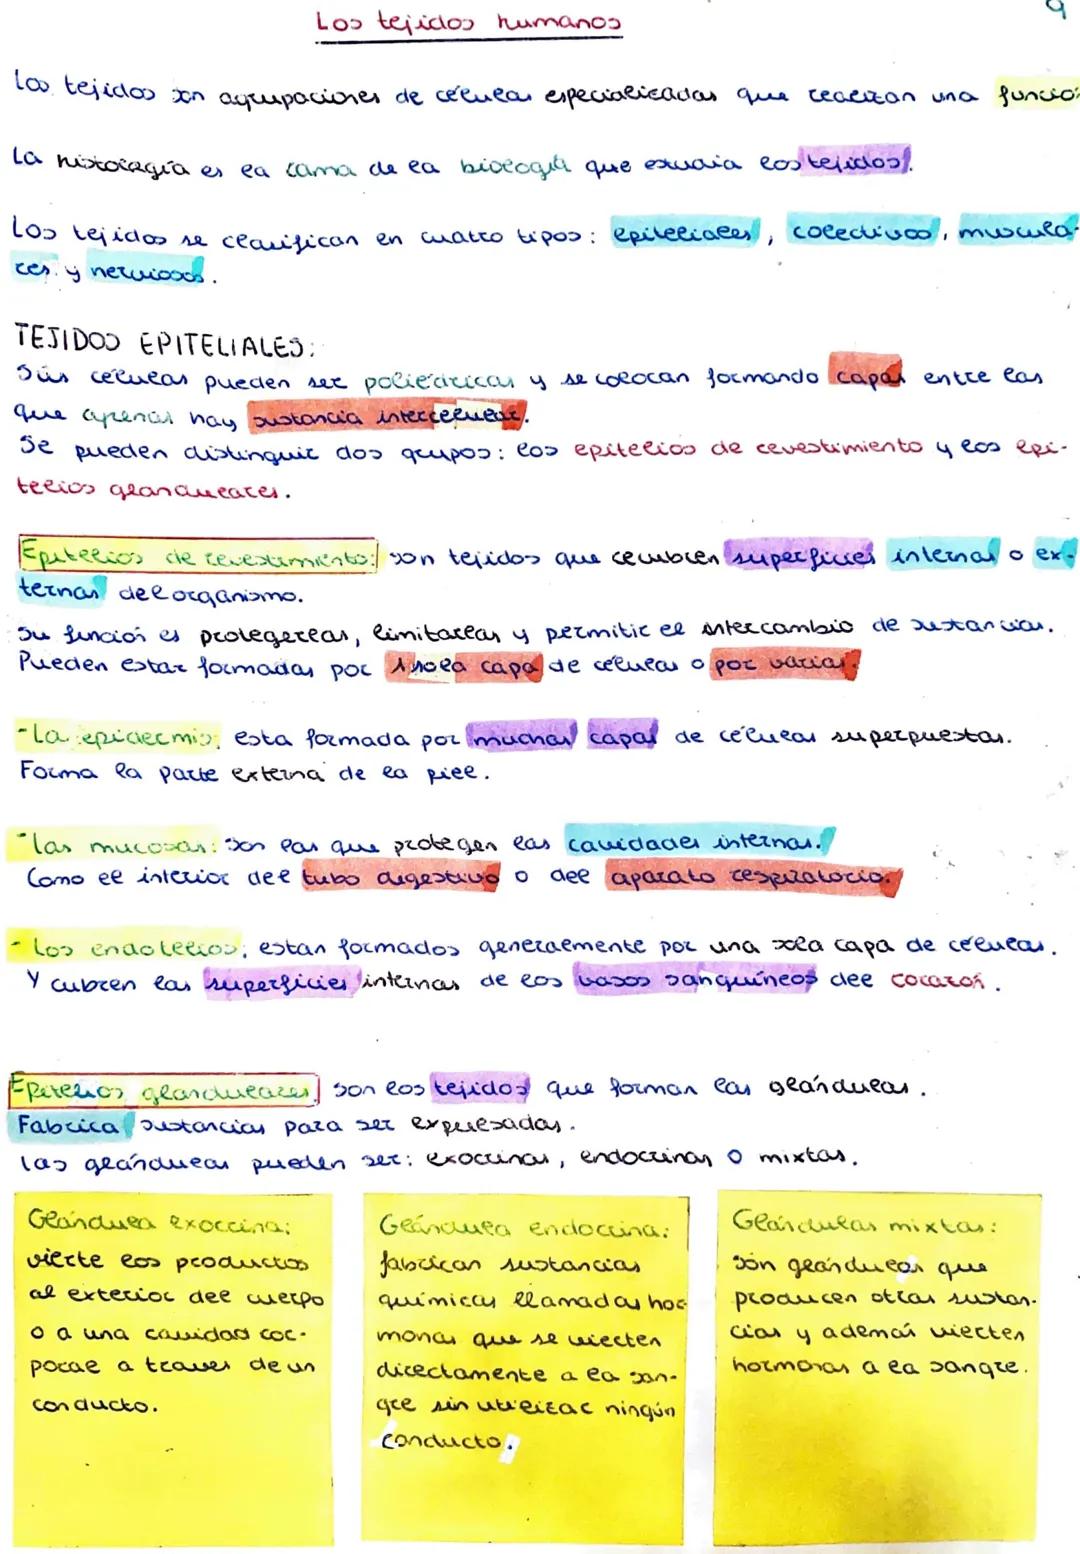 Los tejidos humanos
9
Los tejidos son agrupaciones de células especializadas que realizan una función
La histología es la rama de la biología que estudia los tejidos.
Los tejidos se clasifican en cuatro tipos: epiteliales, colectivos, muscula-
res y nerviosos.
TEJIDOS EPITELIALES:
Sus células pueden ser poliédricas y se colocan formando capas entre las
que apenas hay sustancia intercelular.
Se pueden distinguir dos grupos: los epitelios de revestimiento y los epi-
telios glandulares.
Epitelios de revestimiento: son tejidos que recubren superficies internas o ex-
ternas del organismo.
Su función es protegerlas, limitarlas y permitir el intercambio de sustancias.
Pueden estar formadas por 1 sola capa de células o por varias.
-La epidermis: esta formada por muchas capas de células superpuestas.
Forma la parte externa de la piel.
-Las mucosas: Son las que protegen las cavidades internas.
Como el interior del tubo digestivo o del aparato respiratorio.
-Los endotelios; estan formados generalmente por una sola capa de células.
Y cubren las superficies internas de los vasos sanguíneos del corazón.
Epitelios glandulares son los tejidos que forman las glándulas.
Fabrica sustancias para ser expulsadas.
Las glándulas pueden ser: exocrinas, endocrinas o mixtas.
Glándula exocrina:
vierte los productos
al exterior del cuerpo
o a una cavidad cor-
poral a traves de un
conducto.
Glándula endocrina:
fabrican sustancias
químicas llamadas hor
monas que se vierten
directamente a la san-
gre sin utilizar ningún
conducto.
Glándulas mixtas:
Son glándulas que
producen otras sustan-
cias y además vierten
hormonas a la sangre.